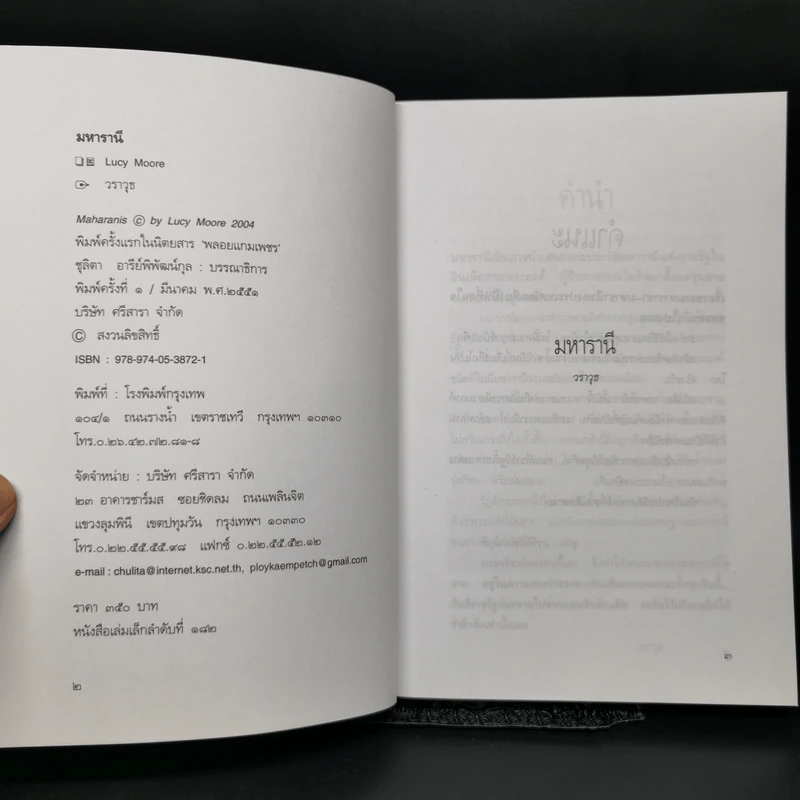 มหารานี
Lucy Moore
วราวุธ
Maharanis © by Lucy Moore 2004
พิมพ์ครั้งแรกในนิตยสาร 'พลอยแกมเพชร'
ชุลิตา อารีย์พิพัฒน์กุล : บรรณาธิการ
พิมพ์ครั้งที่ ๑ / มีนาคม พ.ศ.๒๕๕๑
บริษัท ศรีสารา จำกัด
© สงวนลิขสิทธิ์
ISBN : 978-974-05-3872-1
พิมพ์ที่ : โรงพิมพ์กรุงเทพ
๑๐๔/๑ ถนนรางน้ำ เขตราชเทวี กรุงเทพฯ ๑๐๓๑๐
โทร.๐.๒๖.๔๒.๗๒.๘๑-๘
จัดจำหน่าย : บริษัท ศรีสารา จำกัด
๒๓ อาคารชาร์มส ซอยชิดลม ถนนเพลินจิต
แขวงลุมพินี เขตปทุมวัน กรุงเทพฯ ๑๐๓๓๐
โทร.๐.๒๒.๕๕.๕๕.๙๘ แฟกซ์ ๐.๒๒.๕๕.๕๒.๑๒
e-mail : chulita@internet.ksc.net.th, ploykaempetch@gmail.com
ราคา ๓๕๐ บาท
หนังสือเล่มเล็กลำดับที่ ๑๘๒
๒
มหารานี
วราวุธ
๓